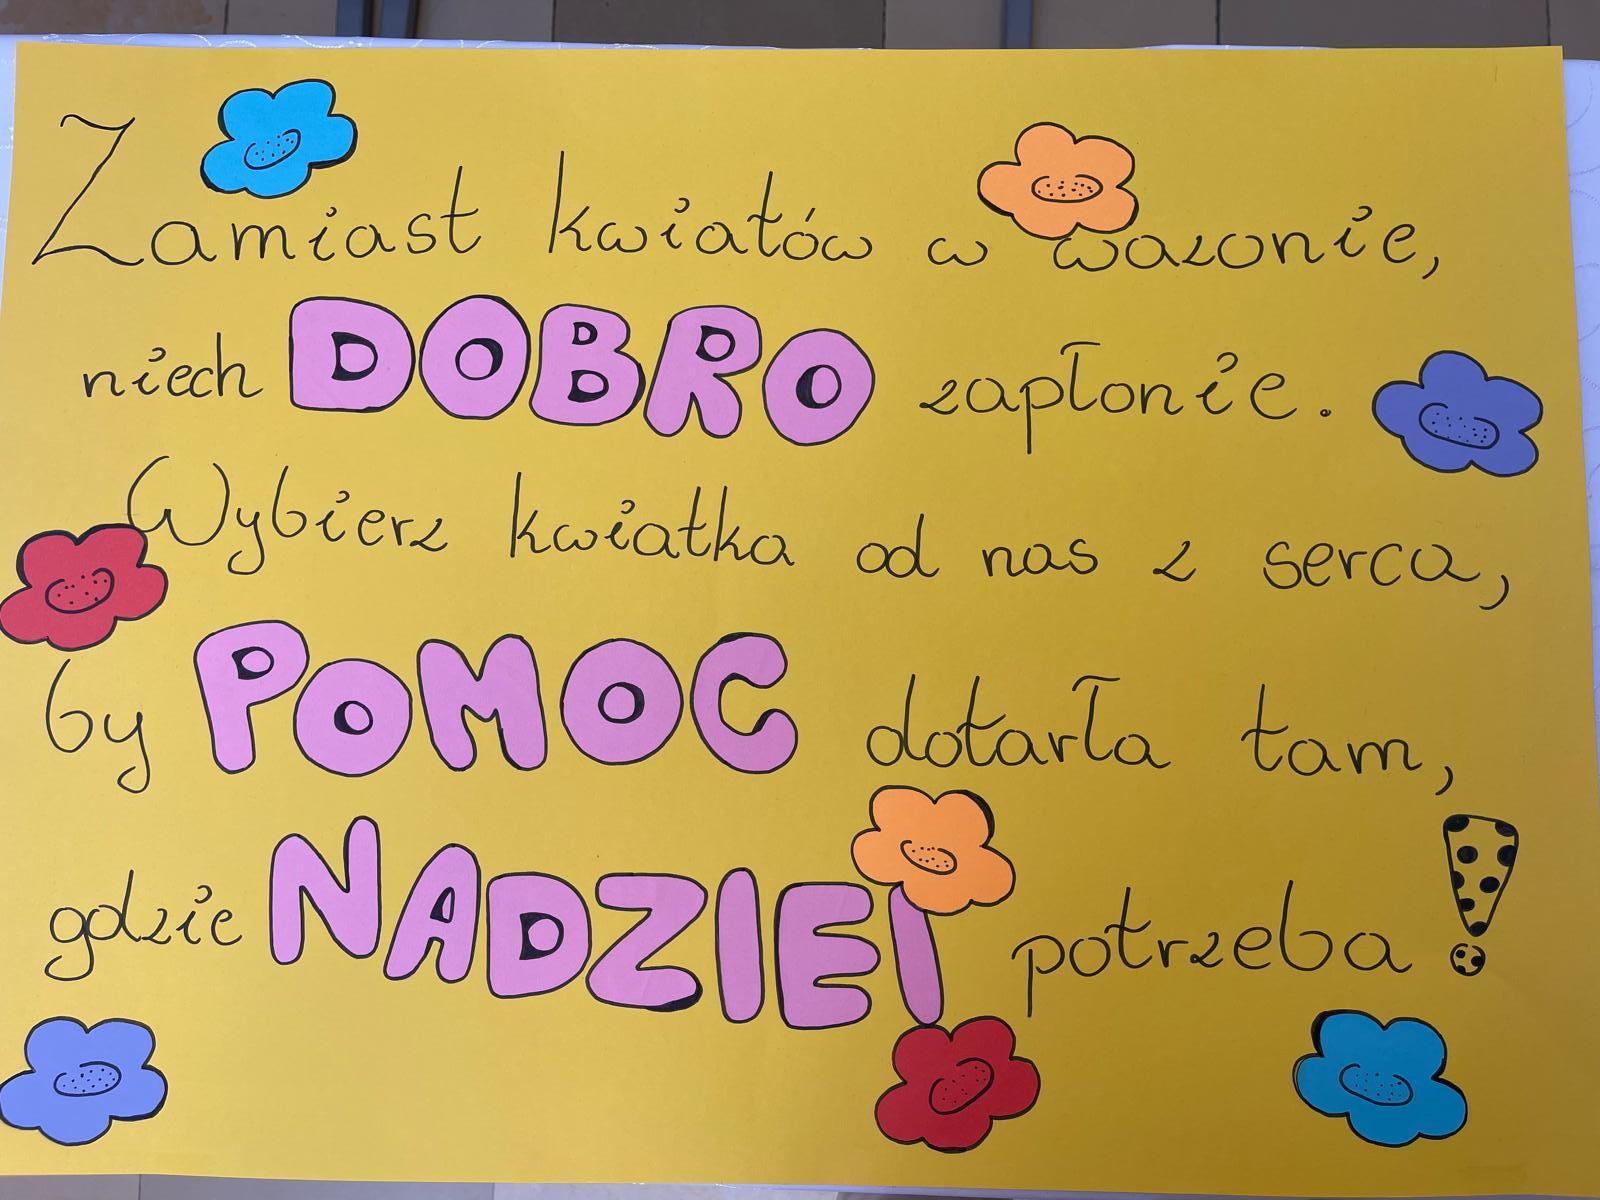 Zamiast kwiatów w wazonie,
niech DOBRO zapłonie.
Wybierz kwiatka od nas z serca,
by POMOC dotarła tam,
gdzie NADZIEI potrzeba!